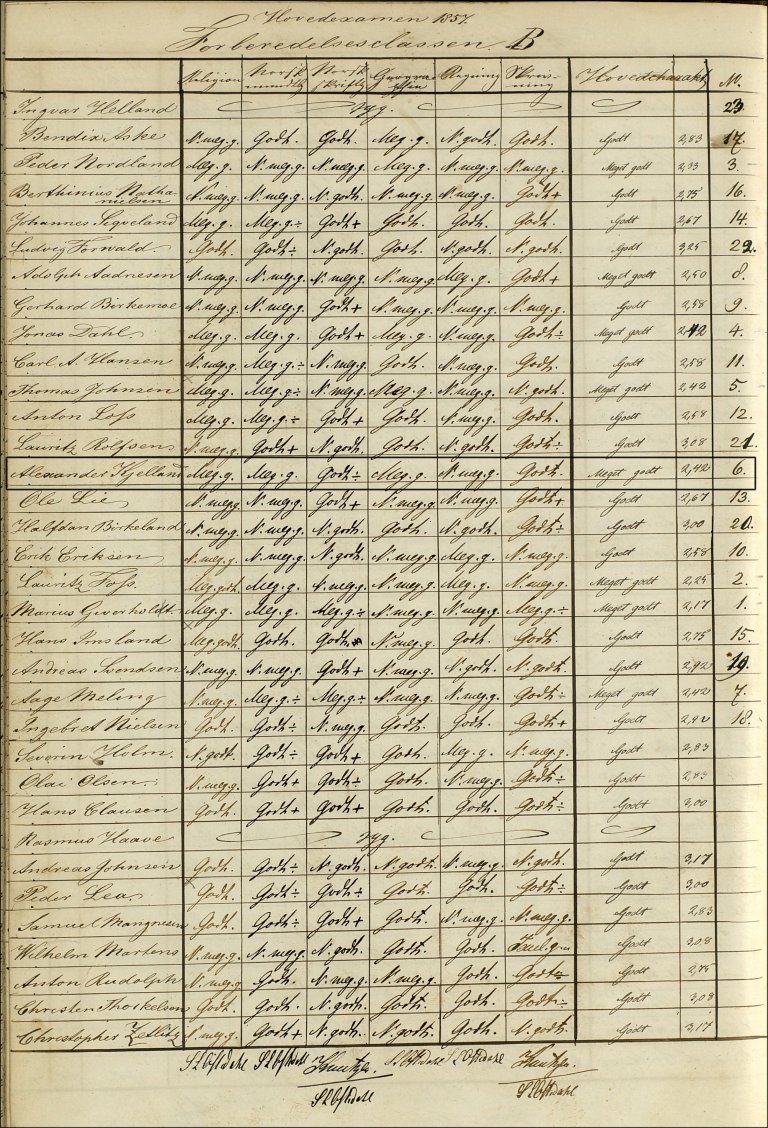 Hovedexamen 1857.
Forberedelsesclassen. B
Religion Norsk mundtlig Norsk skriftlig Geographie Regning Skrivning Hovedcharakt. No.
Ingvar Helland syg. 23.
Bendix Aske N. meg. g. Godt. Godt. Meg. g. N. godt. Godt. Godt 2,83 17.
Peder Nordland Meg. g. N. meg. g. N. meg. g. Meg. g. N. meg. g. N. meg. g. Meget godt 2,33 3.
Berthinius Nathanielsen N. meg. g. N. meg. g. N. godt. N. meg. g. N. meg. g. Godt + Godt 2,75 16.
Johannes Sigveland Meg. g. Meg. g. ÷ Godt + Godt. Godt. Godt. Godt 2,67 14.
Ludvig Torwald. Godt. Godt ÷ N. godt. Godt. N. godt. N. godt. Godt 3,25 22.
Adolph Aadnesen N. meg. g. N. meg. g. N. meg. g. N. meg. g. Meg. g. Godt + Meget godt 2,50 8.
Gerhard Birkemoe N. meg. g. N. meg. g. Godt + N. meg. g. N. meg. g. N. meg. g. Godt 2,58 9.
Jonas Dahl. Meg. g. Meg. g. Godt + Meg. g. N. meg. g. Godt ÷ Meget godt 2,42 4.
Carl A. Hansen N. meg. g. Meg. g. ÷ N. meg. g. Godt. N. meg. g. Godt. Godt 2,58 11.
Thomas Johnsen Meg. g. Meg. g. ÷ N. meg. g. Meg. g. N. meg. g. N. godt. Meget godt 2,42 5.
Anton Loss Meg. g. Meg. g. ÷ Godt + Godt. N. meg. g. Godt. Godt 2,58 12.
Lauritz Rolfsen N. meg. g. Godt + N. godt. Godt. N. godt. Godt ÷ Godt 3,08 21.
Alexander Kjelland Meg. g. Meg. g. Godt ÷ Meg. g. N. meg. g. Godt. Meget godt 2,42 6.
Ole Lie N. meg. g. N. meg. g. Godt + N. meg. g. N. meg. g. Godt + Godt 2,67 13.
Halfdan Birkeland N. meg. g. N. meg. g. N. godt. Godt. N. godt. Godt ÷ Godt 3,00 20.
Erik Eriksen N. meg. g. N. meg. g. N. godt. N. meg. g. Meg. g. N. meg. g. Godt 2,58 10.
Lauritz Foss. Meg. godt. Meg. g. N. meg. g. N. meg. g. Meg. g. N. meg. g. Meget godt 2,25 2.
Marius Qvorholdt. Meg. g. Meg. g. Meg. g. ÷ N. meg. g. N. meg. g. Meg. g. ÷ Meget godt 2,17 1.
Hans Imsland Meg. godt. Godt. Godt. N. meg. g. Godt. Godt. Godt 2,75 15.
Andreas Svendsen N. meg. g. N. meg. g. Godt + N. meg. g. N. godt. N. godt. Godt 2,92 19.
Aage Meling N. meg. g. Meg. g. ÷ Meg. g. ÷ N. meg. g. N. meg. g. Godt ÷ Meget godt 2,42 7.
Ingebret Nielsen Godt. Godt ÷ N. meg. g. Godt. Godt. Godt + Godt 2,92 18.
Severin Holm. N. godt. Godt ÷ Godt + Godt. Meg. g. N. meg. g. Godt 2,83
Olai Olsen. N. meg. g. Godt + Godt ÷ Godt. N. meg. g. Godt ÷ Godt 2,83
Hans Clausen Godt. Godt + Godt + Godt. Godt. Godt ÷ Godt 3,00
Rasmus Haave syg.
Andreas Johnsen Godt. Godt ÷ N. godt. N. godt. N. meg. g. N. godt. Godt 3,17
Peder Lea. Godt. Godt ÷ Godt ÷ Godt. Godt. Godt ÷ Godt 3,00
Samuel Mangnesen Godt. Godt ÷ Godt + Godt. N. meg. g. N. meg. g. Godt 2,83
Wilhelm Martens N. meg. g. N. meg. g. N. godt. Godt. Godt. Godt 3,08
Anton Rudolph N. meg. g. Godt. N. meg. g. N. meg. g. Godt. Godt ÷ Godt 2,75
Christen Thorkelsen Godt. Godt. N. godt. Godt. Godt. Godt ÷ Godt 3,08
Christopher Zetlitz N. meg. g. Godt + N. godt. N. godt. Godt. N. godt. Godt 3,17